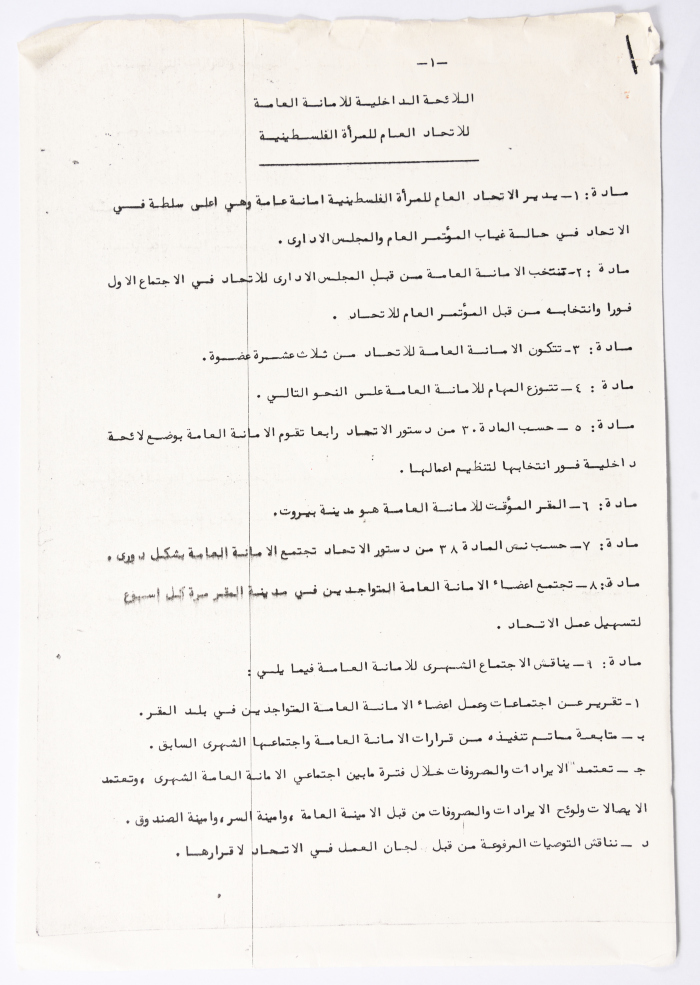 -١-
اللائحة الداخلية للامانة العامة
للاتحاد العام للمرأة الفلسطينية
مادة: ١- يدير الاتحاد العام للمرأة الفلسطينية امانة عامة وهي اعلى سلطة فــي
الاتحاد في حالة غياب المؤتمر العام والمجلس الادارى .
مادة : ٢- تنتخب الامانة العامة من قبل المجلس الادارى للاتحاد في الاجتماع الاول
فورا وانتخابه من قبل المؤتمر العام للاتحاد .
مادة: ٣- تتكون الامانة العامة للاتحاد من ثلاث عشرة عضوة .
مادة : ٤- تتوزع المهام للامانة العامة على النحو التالي .
مادة : ٥ - حسب المادة ٣٠ من دستور الاتحاد رابعا تقوم الامانة العامة بوضع لائحة
داخلية فور انتخابها لتنظيم اعمالها .
مادة: ٦- المقر المؤقت للامانة العامة هو مدينة بيروت .
مادة: ٧- حسب نص المادة ٣٨ من دستور الاتحاد تجتمع الامانة العامة بشكل دورى .
مادة: ٨- تجتمع اعضاء الامانة العامة المتواجدين في مدينة المقر مرة كل اسبوع
لتسهيل عمل الاتحاد .
مادة: ٩- يناقش الاجتماع الشهرى للامانة العامة فيما يلي :
١- تقرير عن اجتماعات وعمل اعضاء الامانة العامة المتواجدين في بلد المقر .
ب - متابعة ماتم تنفيذه من قرارات الامانة العامة واجتماعها الشهرى السابق .
جـ - تعتمد الايرادات والمصروفات خلال فترة مابين اجتماعي الامانة العامة الشهرى ، وتعتمد
الايصالات ولوئح الايرادات والمصروفات من قبل الامينة العامة ، وامينة السر ، وامينة الصندوق .
د - نناقش التوصيات المرفوعة من قبل لجان العمل في الاتحاد لاقرارها .